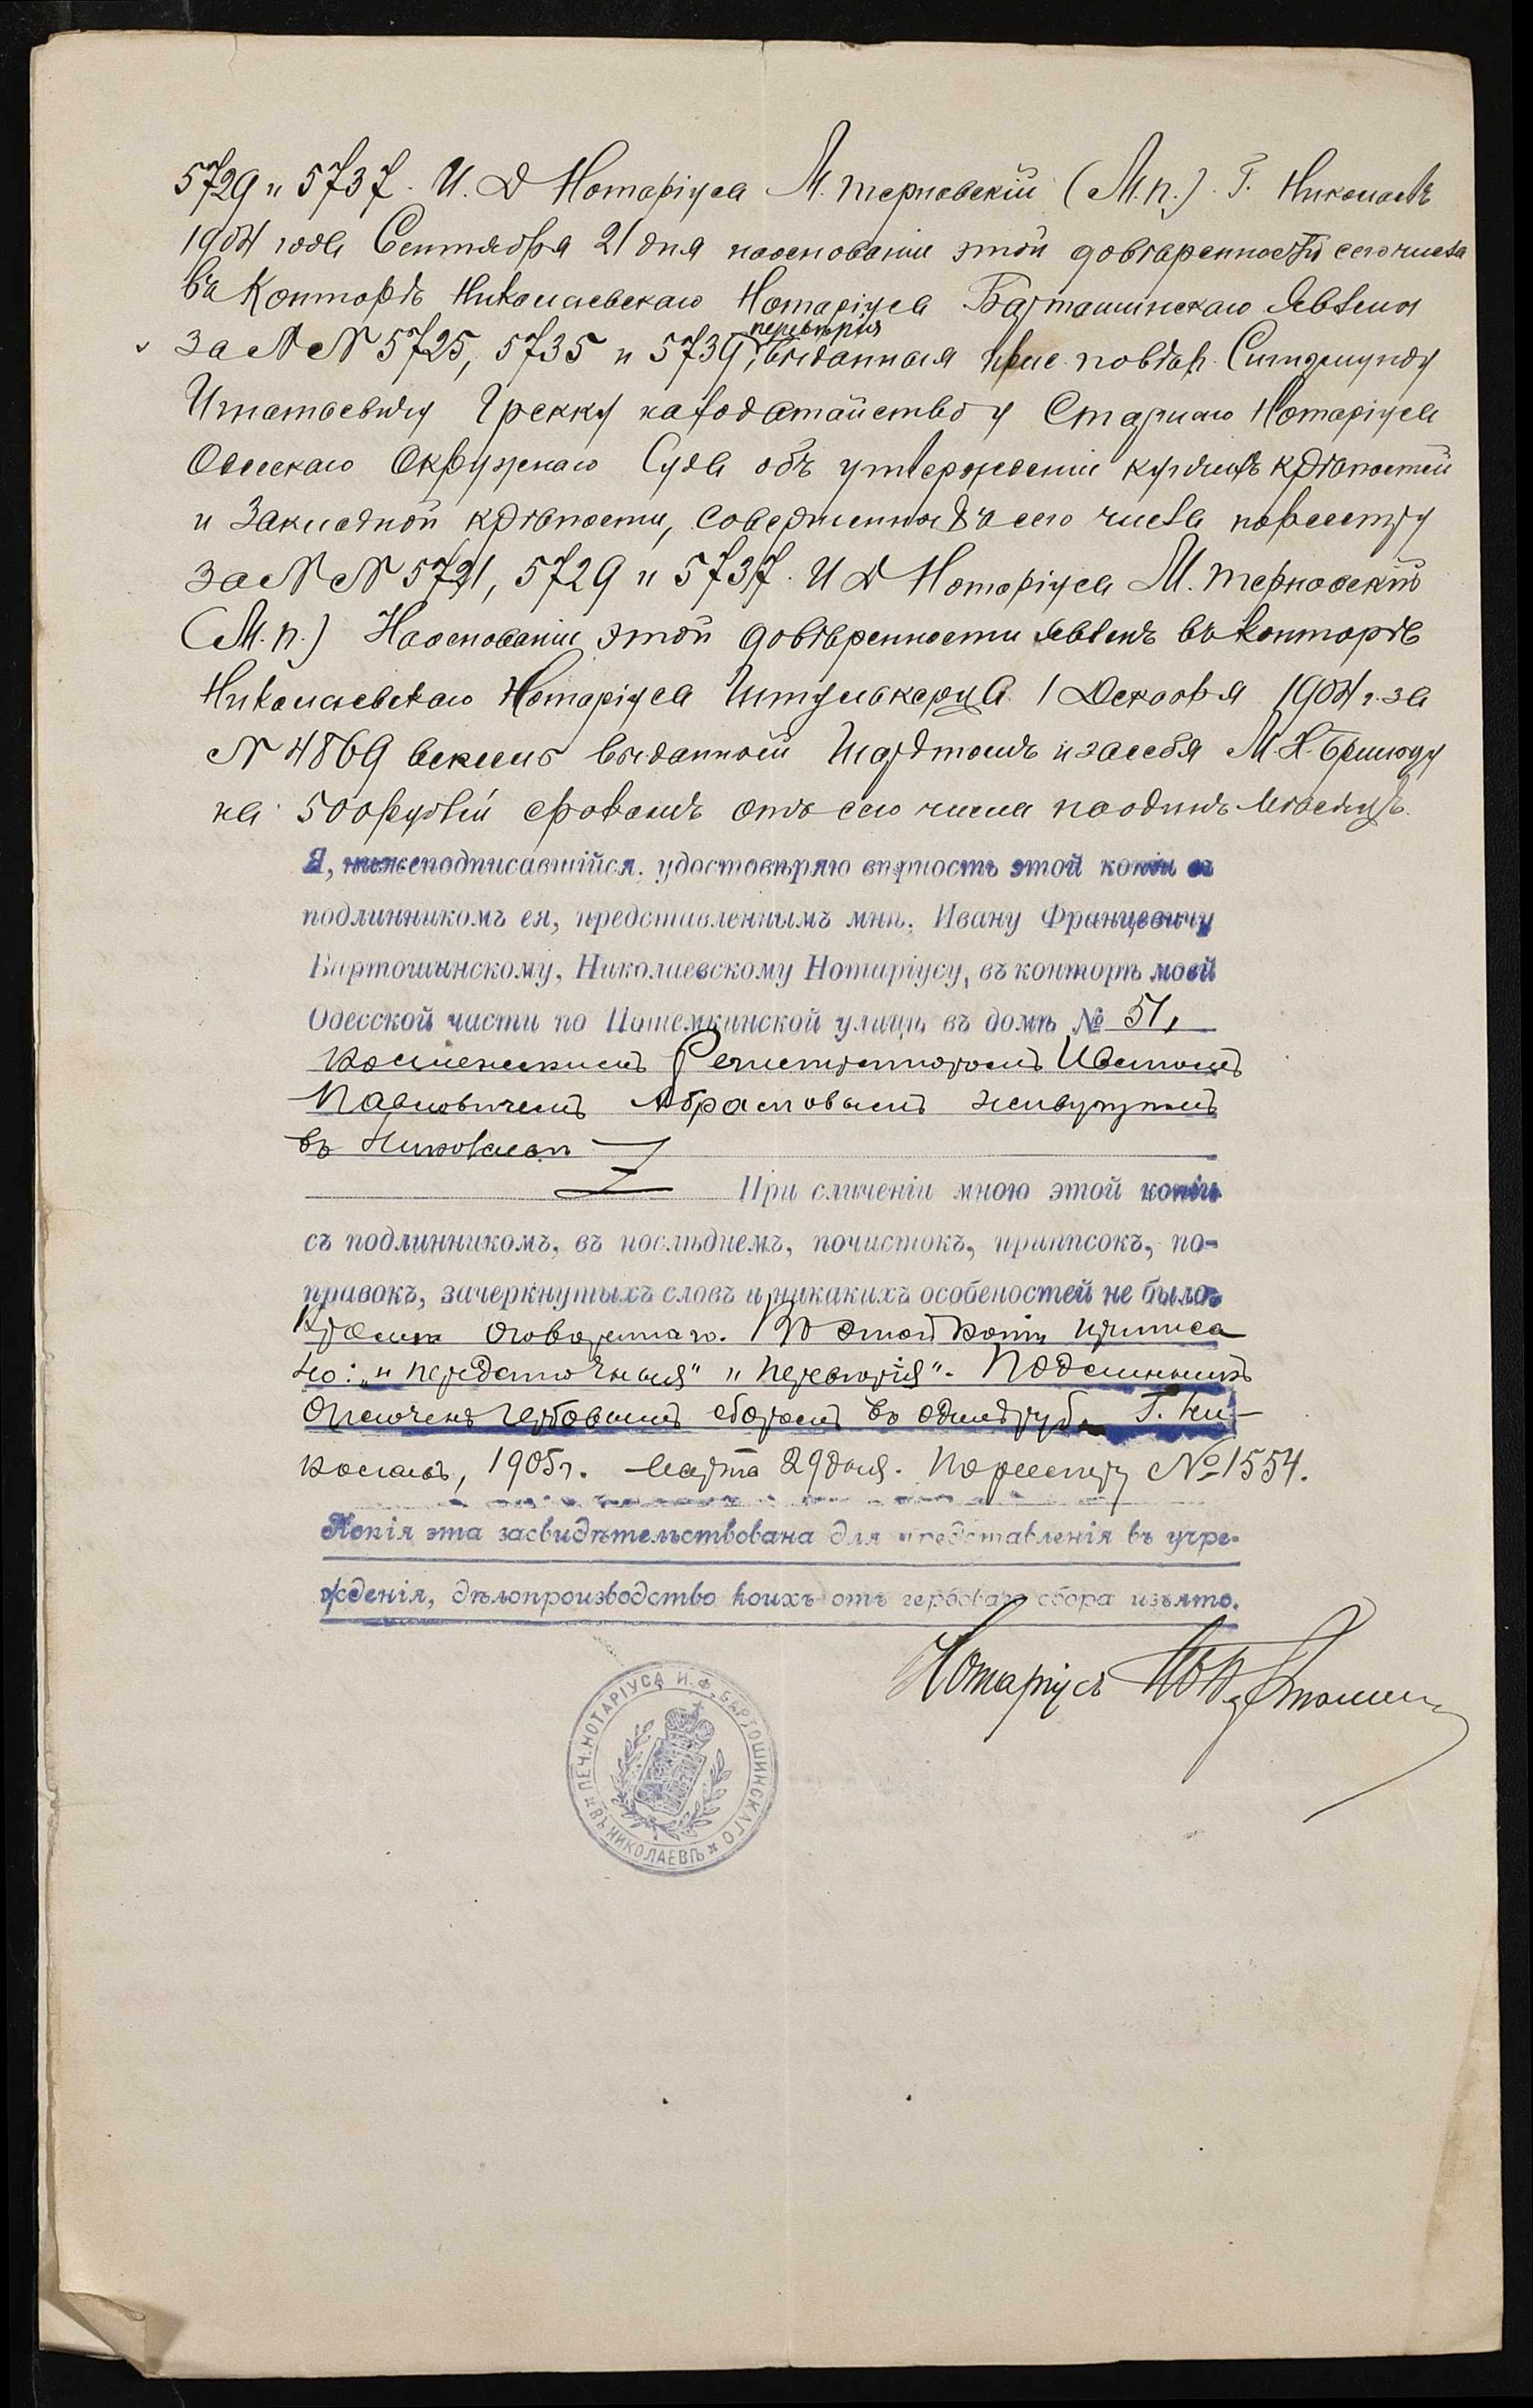 5729 и 5737. И. Д Нотаріуса М. Терновскій (М. п.). Г. Николаевъ
1904 года Сентября 21 дня наоснованіи этой довѣренности сего числа
въ Конторѣ Николаевскаго Нотаріуса Бартошинскаго явлены
за №№ 5725, 5735 и 5739, перевѣрія выданныя прис. повѣр. Сигизмунду
Игнатьевичу Грекку находатайство у Старшаго Нотаріуса
Одесскаго Окружнаго Суда объ утвержденіи купчихъ крѣпостей
и Закладной крѣпости, совершенной сего числа пореестру
за №№ 5721, 5729 и 5737. И Д Нотаріуса М. Терновскій
(М. п.) Наоснованіи этой довѣренности явленъ въ конторѣ
Николаевскаго Нотаріуса 1 Декабря 1904 г. за
№ 4869 вексель выданный М. Х.
на 500 рублей срокомъ отъ сего числа наодинъ мѣсяцъ.
Я, нижеподписавшійся, удостовѣряю вѣрность этой копіи съ
подлинникомъ ея, представленнымъ мнѣ, Ивану Францевичу
Бартошинскому, Николаевскому Нотаріусу, въ конторѣ моей
Одесской части по Потемкинской улицѣ въ домѣ № 51,
Коллежскимъ Регистраторомъ Иваномъ
Павловичемъ Абрамовымъ живущимъ
въ Николаевѣ
При сличеніи мною этой копіи
съ подлинникомъ, въ послѣднемъ, почистокъ, приписокъ, по-
правокъ, зачеркнутыхъ словъ и никакихъ особеностей не было
Кромѣ оговореннаго. Въ этой копіи приписа
но: „и передаточныя" „перевѣрія". Подлинникъ
оплоченъ гербовымъ сборомъ въ одинъ рубль Г. Ни-
колаевъ, 1905 г. Марта 29 дня. По реестру № 1554.
Копія эта засвидѣтельствована для представленія въ учре-
жденія, дѣлопроизводство коихъ отъ гербоваго сбора изъято.
Нотаріусъ
ПЕЧ. НОТАРІУСА И. Ф. БАРТОШИНСКАГО ВЪ НИКОЛАЕВѢ